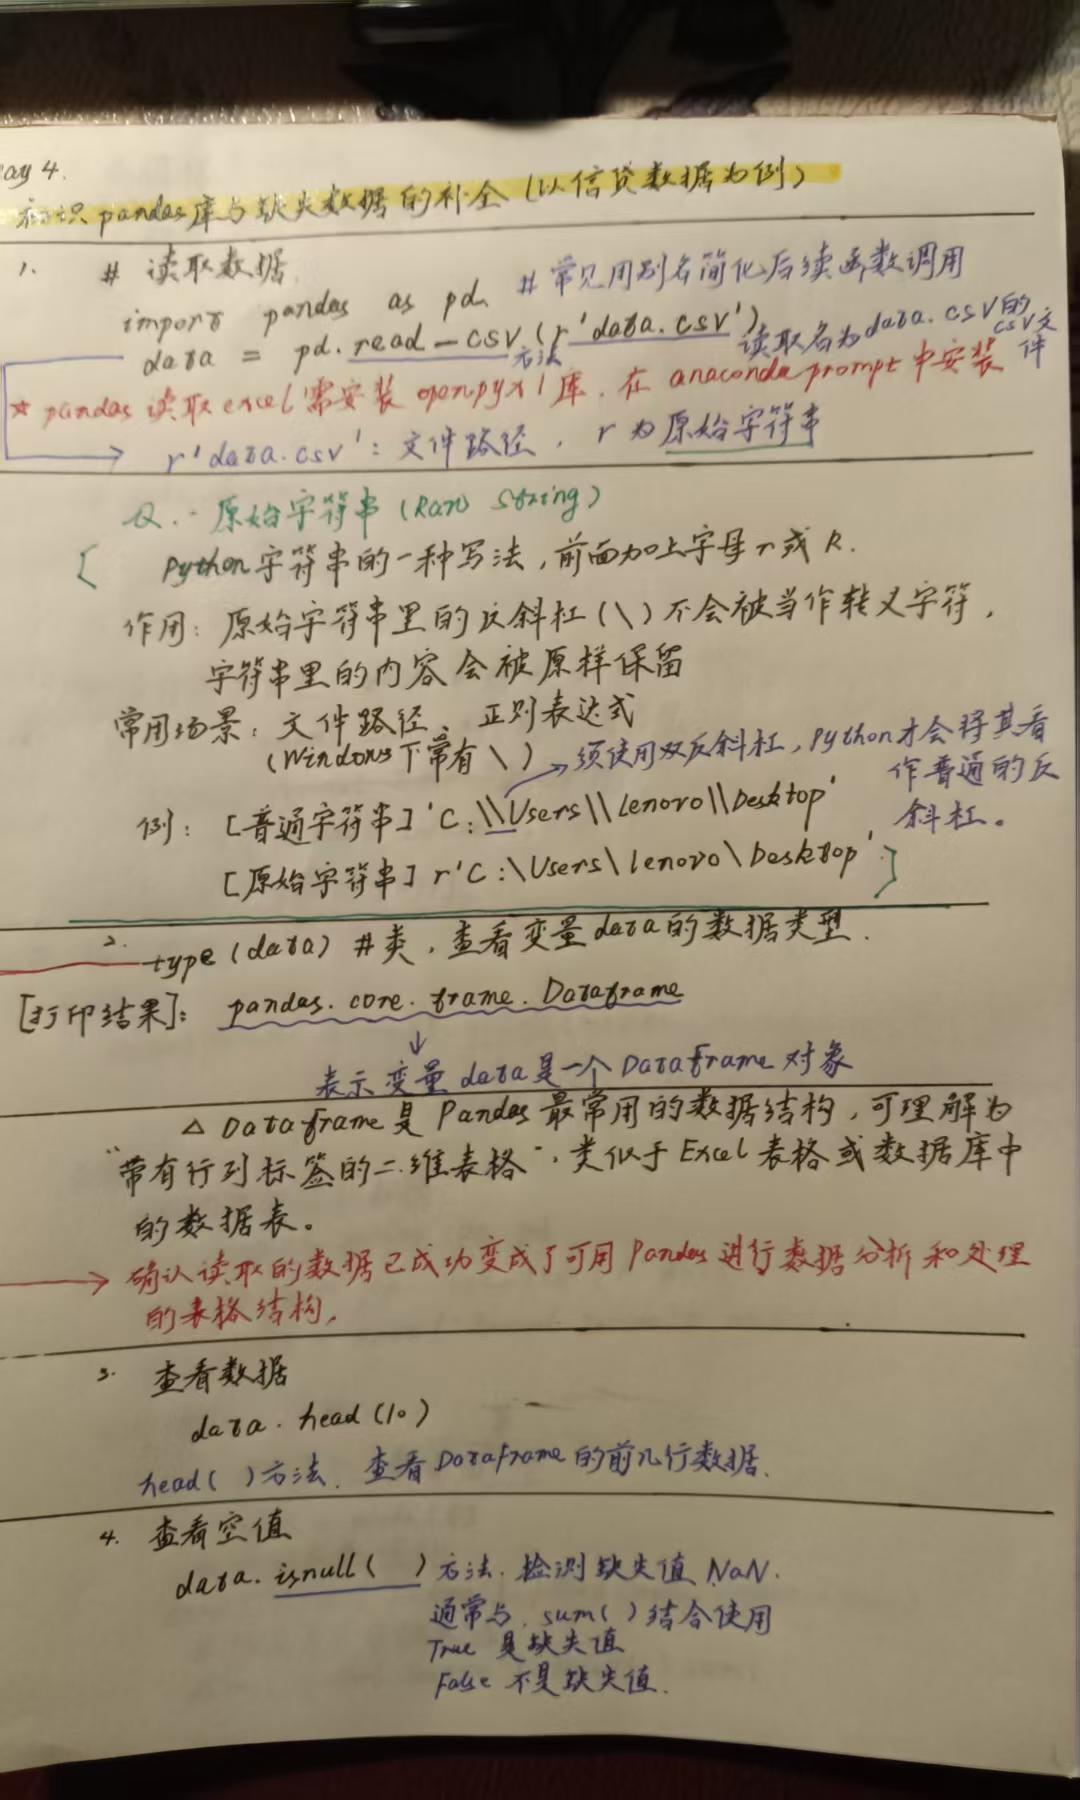 Day 4.
初识pandas库与缺失数据的补全(以信贷数据为例)
1. # 读取数据
import pandas as pd. # 常见用别名简化后续函数调用
data = pd.read_csv(r'data.csv') 读取名为data.csv的csv文件
方法
★ pandas读取excel需安装openpyxl库.在anaconda prompt中安装
r'data.csv':文件路径, r为原始字符串
Q.:原始字符串(Raw String)
Python字符串的一种写法,前面加上字母r或R.
作用:原始字符串里的反斜杠(\)不会被当作转义字符,
字符串里的内容会被原样保留
常用场景:文件路径、正则表达式
(Windows下常有\) → 须使用双反斜杠,Python才会将其看作普通的反斜杠。
例:[普通字符串]'C:\\Users\\Lenovo\\Desktop'
[原始字符串]r'C:\Users\lenovo\Desktop'
2. type(data) #类,查看变量data的数据类型.
[打印结果]:pandas.core.frame.Dataframe
↓
表示变量data是一个DataFrame对象
△ Dataframe是Pandas最常用的数据结构,可理解为
"带有行列标签的二维表格",类似于Excel表格或数据库中
的数据表。
→ 确认读取的数据已成功变成了可用Pandas进行数据分析和处理
的表格结构.
3. 查看数据
data.head(10)
head( )方法.查看DataFrame的前几行数据.
4. 查看空值
data.isnull( )方法.检测缺失值NaN.
通常与.sum()结合使用
True 是缺失值
False 不是缺失值.